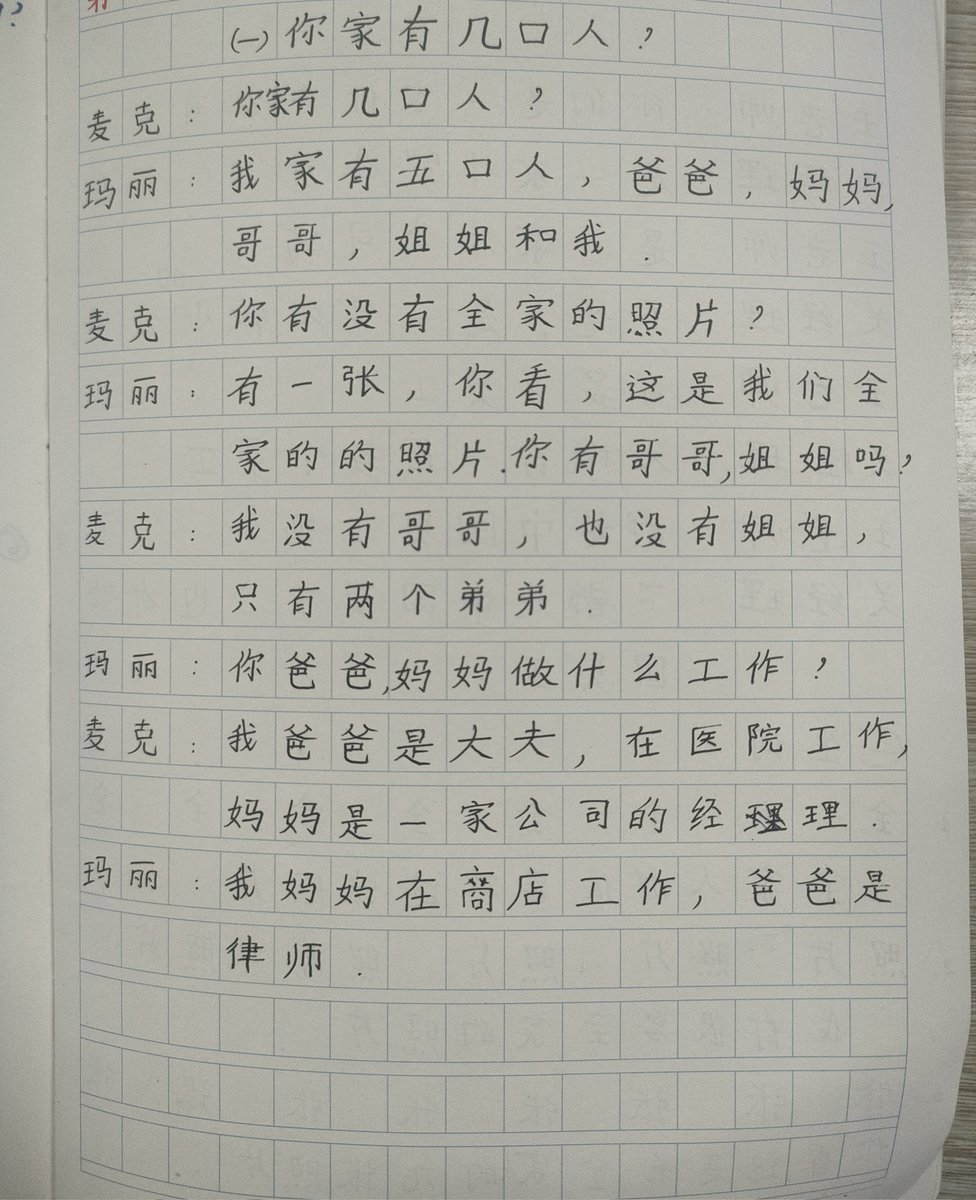 (一)你家有几口人?
麦克:你家有几口人?
玛丽:我家有五口人,爸爸,妈妈,
哥哥,姐姐和我.
麦克:你有没有全家的照片?
玛丽:有一张,你看,这是我们全
家的的照片.你有哥哥,姐姐吗?
麦克:我没有哥哥,也没有姐姐,
只有两个弟弟.
玛丽:你爸爸,妈妈做什么工作?
麦克:我爸爸是大夫,在医院工作,
妈妈是一家公司的经理.
玛丽:我妈妈在商店工作,爸爸是
律师.